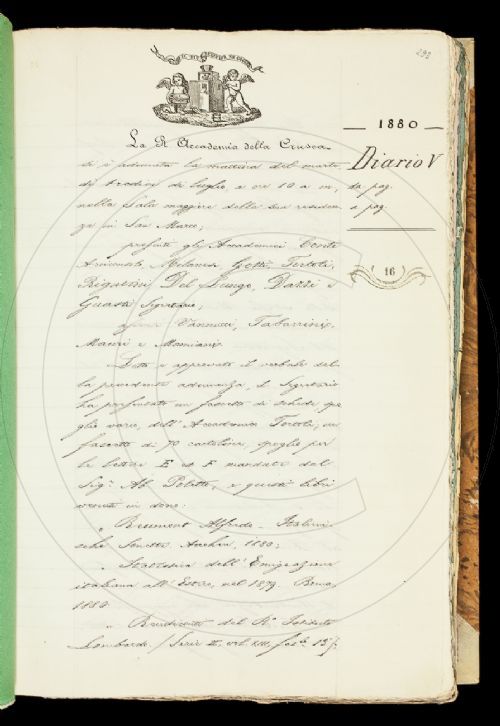 292
La R. Accademia della Crusca
si è adunata la mattina del marte-
dì tredici di luglio, a ore 10 a m,
nella Sala maggiore della sua residen-
za in San Marco;
presenti gli Accademici Conti
Arciconsolo, Milanesi, Gotti, Tortoli,
Rigutini, Del Lungo, Dazzi e
Guasti Segretario;
assenti Vannucci, Tabarrini,
Mauri e Mamiani.
Letto e approvato il verbale del-
la precedente adunanza, il Segretario
ha presentato un fascetto di schede, spo-
glio vario, dell'Accademico Tortoli; un
fascetto di 70 cartoline, spoglio per
le lettere E e F mandate dal
Sig. Ab. Poletto, e questi libri
venuti in dono:
" Reumont Alfredo - Italieni-
sche Sonette. Aachen, 1880;
" Statistica dell'Emigrazione
italiana all'Estero, nel 1879. Roma,
1880
" Rendiconti del R. Istituto
Lombardo. / Serie II, vol. XIII, fasc. 13;
1880
Diario V
da pag.
a pag.
16